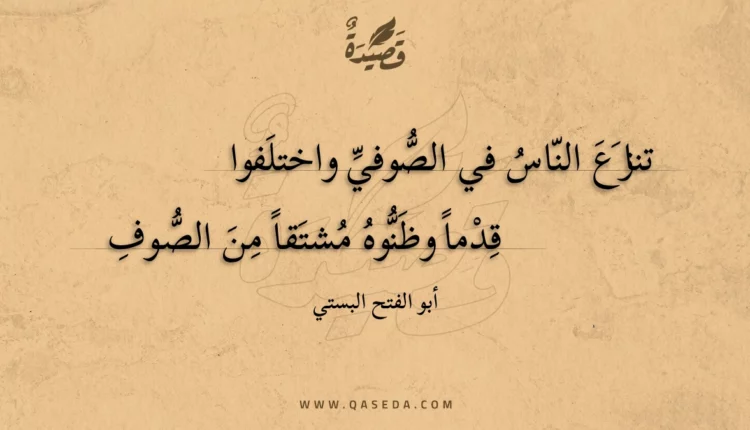 قَصِيدَةٌ
تنازَعَ النّاسُ في الصُّوفيِّ واختلَفوا
قِدْماً وظَنُّوهُ مُشتَقاً مِنَ الصُّوفِ
أبو الفتح البستي
WWW.QASEDA.COM